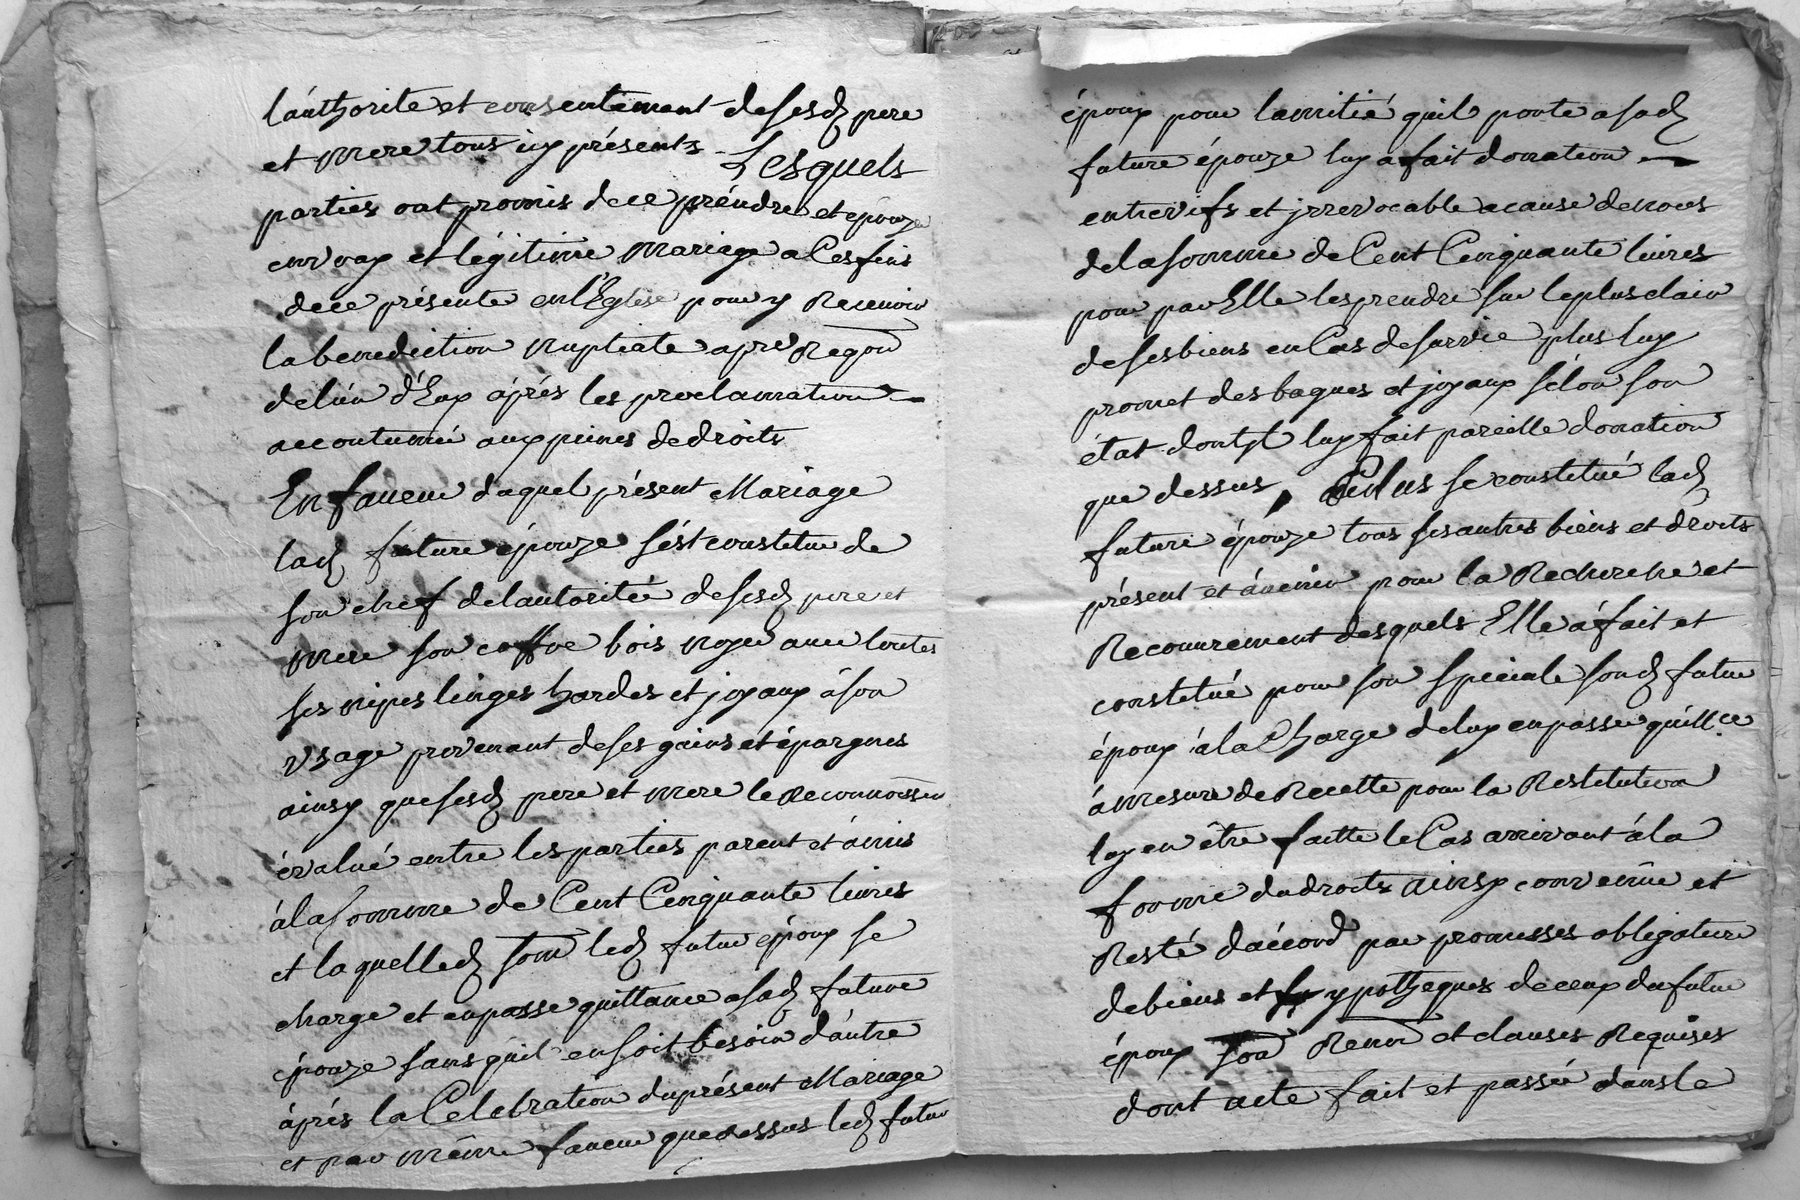 l'authorite et consentement de sesd pere
et mere tous icy présents Lesquels
parties ont promis de ce prendre et épouze
en vray et légitime Mariage a Ces fins
de ce présenté en l'Eglise pour y Recevoir
la benediction nuptiale apre Reqon
de lun d'Eux aprés les proclamation
accoutumée aux peines de droits
En faveur daquel présent Mariage
lad future épouze s'est constitue de
son chef de lautoritée de sesd pere et
mere son coffre bois noyer avec toutes
ses nipes linges hardes et joyaux á son
usage provenant de ses gains et épargnes
ainsy que sesd pere et mere le Reconnoissen
évalué entre les parties parent et ámis
á la somme de Cent Cinquante livres
et laquelled som led futur époux se
charge et en passe quittance asad future
épouze sans quil en soit besoin d'autre
áprés la Celebration du présent Mariage
et par même faveur que dessus led futur
époux pour lamitié quil porte a sad
future épouze luy a fait donation
entre vifs et irrevocable a cause de noces
de la somme de Cent Cinquante livres
pour par Elle les prendre sur le plus clair
de ses biens en Cas de survie plus luy
promet des bagues et joyaux sélon son
état dont il luy fait pareille donation
que dessus, Plus se constitué lad
future épouze tous ses autres biens et droits
présent et ávenir pour la Recherche et
Recouvrement desquels Elle á fait et
constitué pour son speciale sond futur
époux á la Charge de luy en passer quitt.ce
á mesure de Recette pour la Restitution
luy en être faitte le Cas arrivant á la
forme du droits ainsy convenüe et
Resté d'accord par promesses obligatoire
de biens et hypotheques de ceux du futur
époux som Renon et clauses Requises
dont acte fait et passée dans le